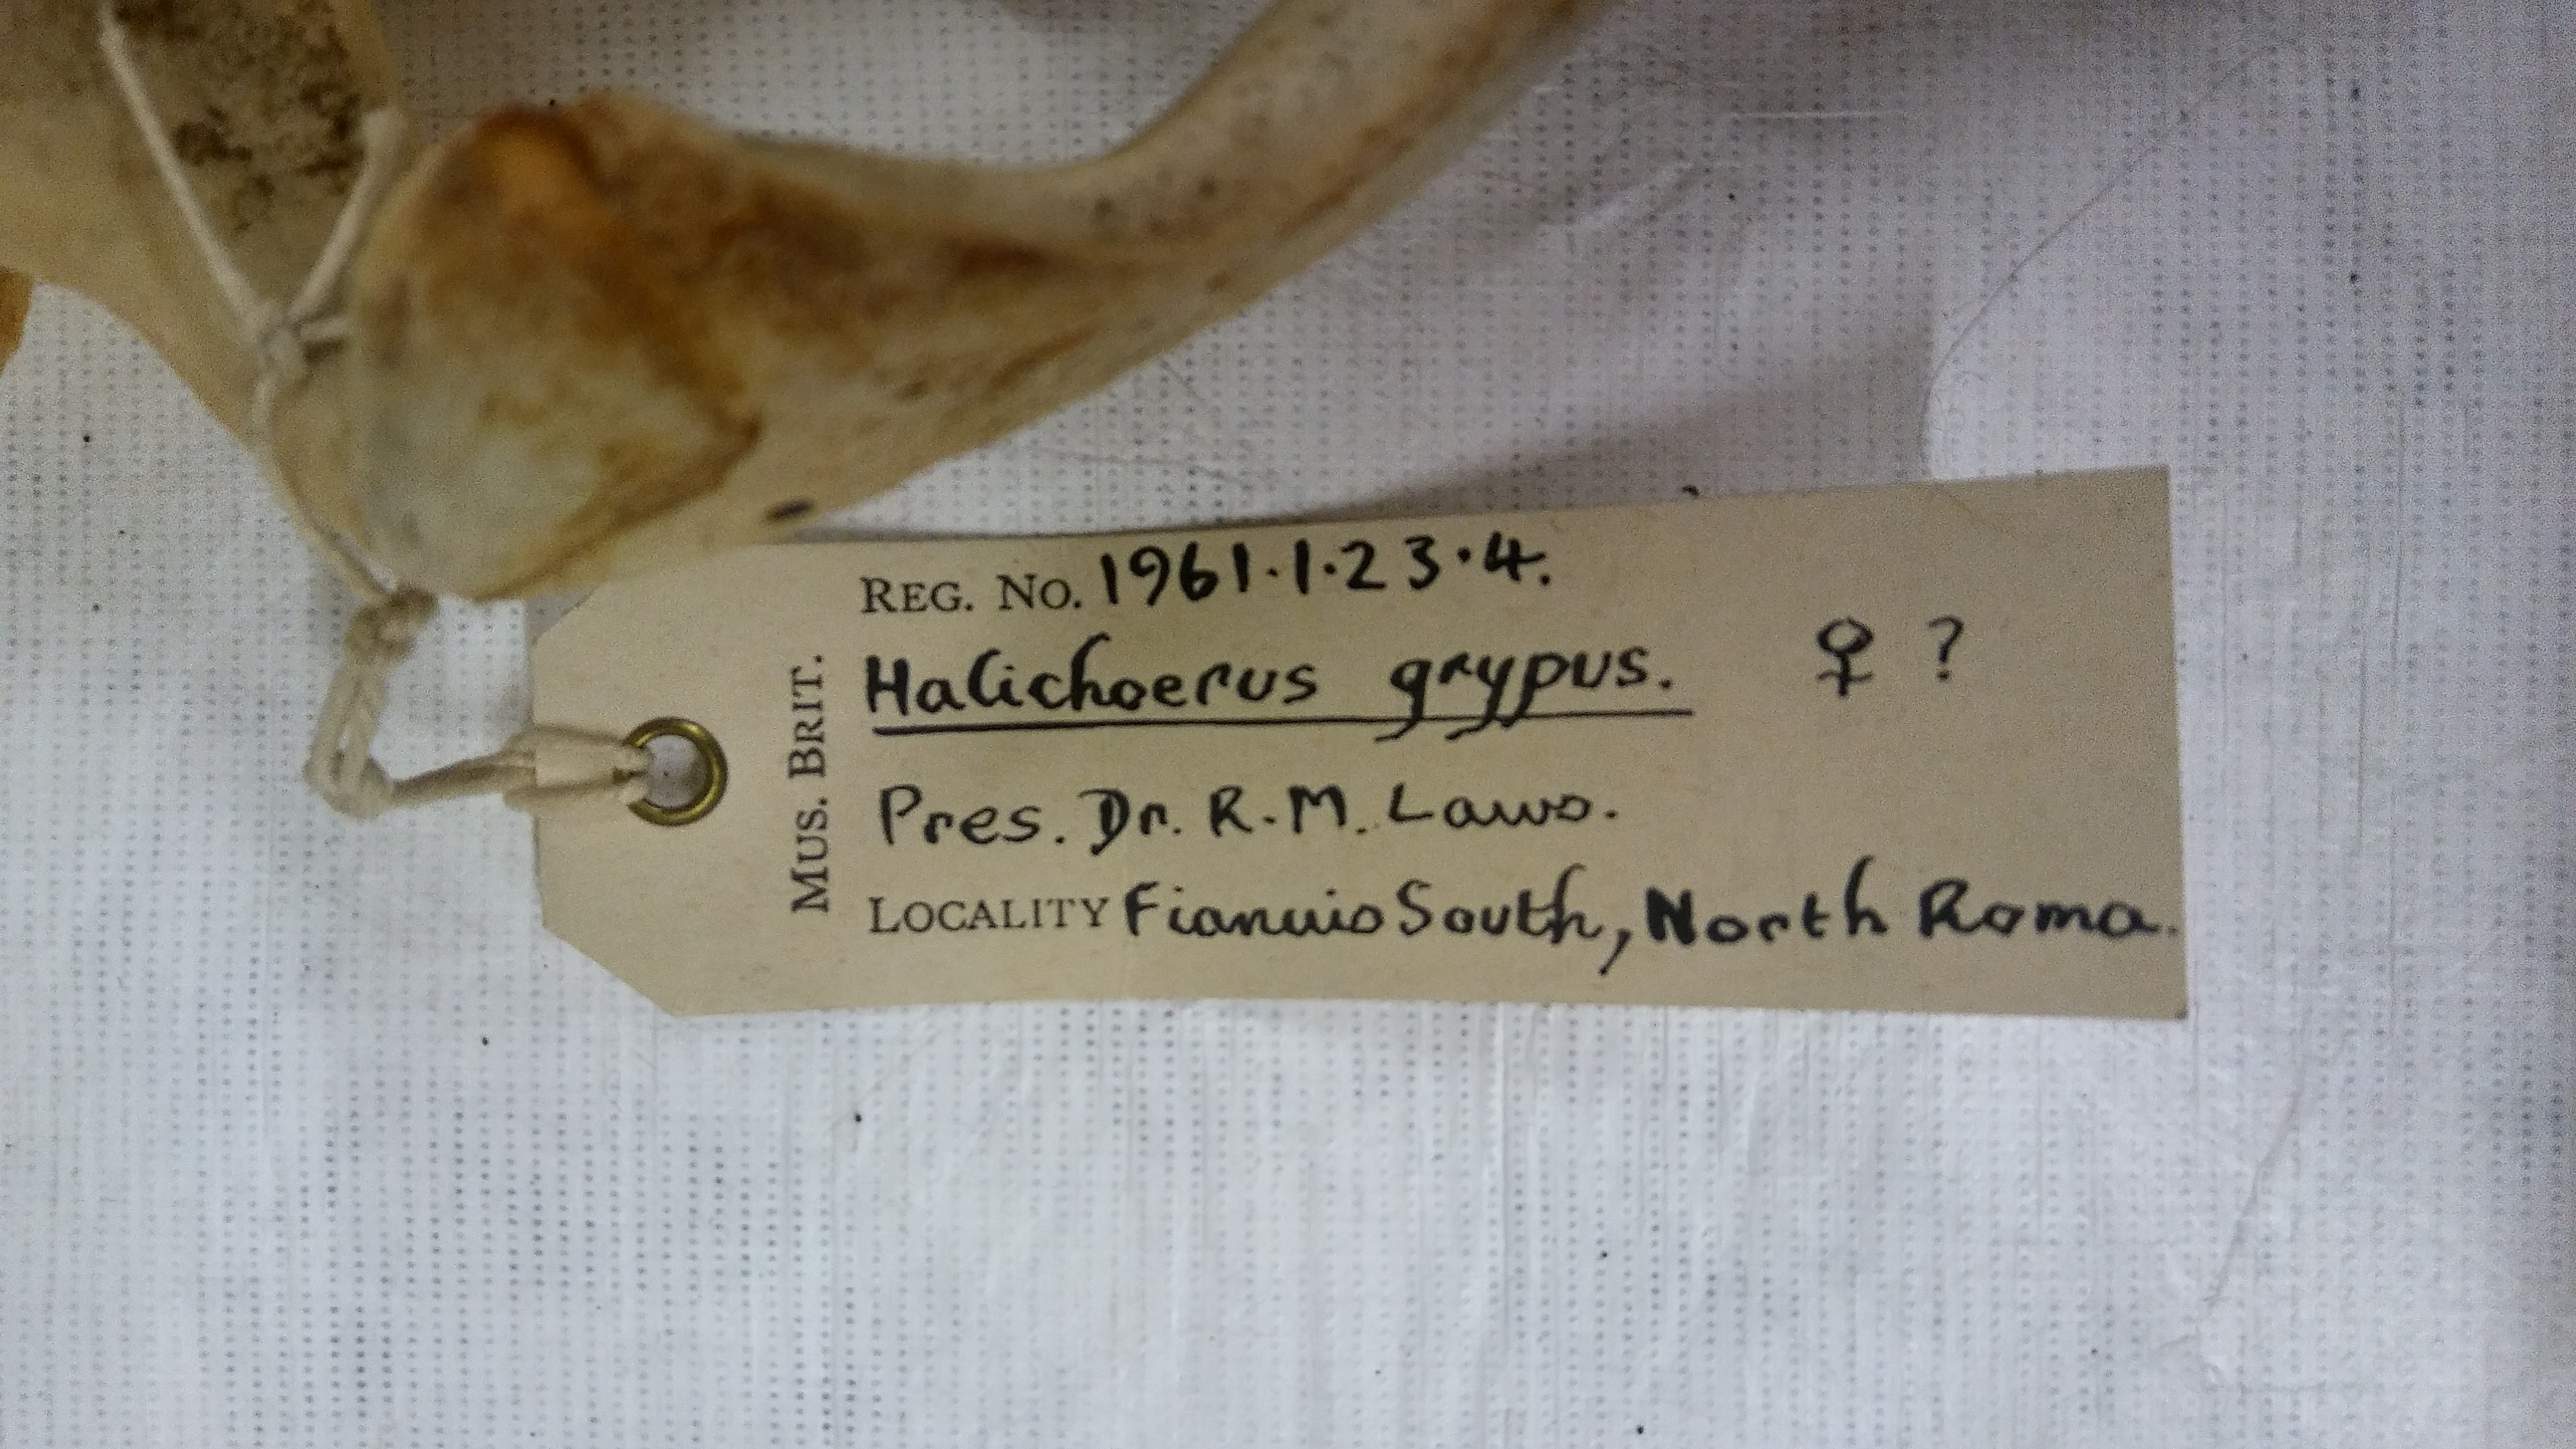 MUS. BRIT.
REG. No. 1961.1.23.4.
Halichoerus grypus. ♀ ?
Pres. Dr. R. M. Laws.
LOCALITY Fianuis South, North Rona.